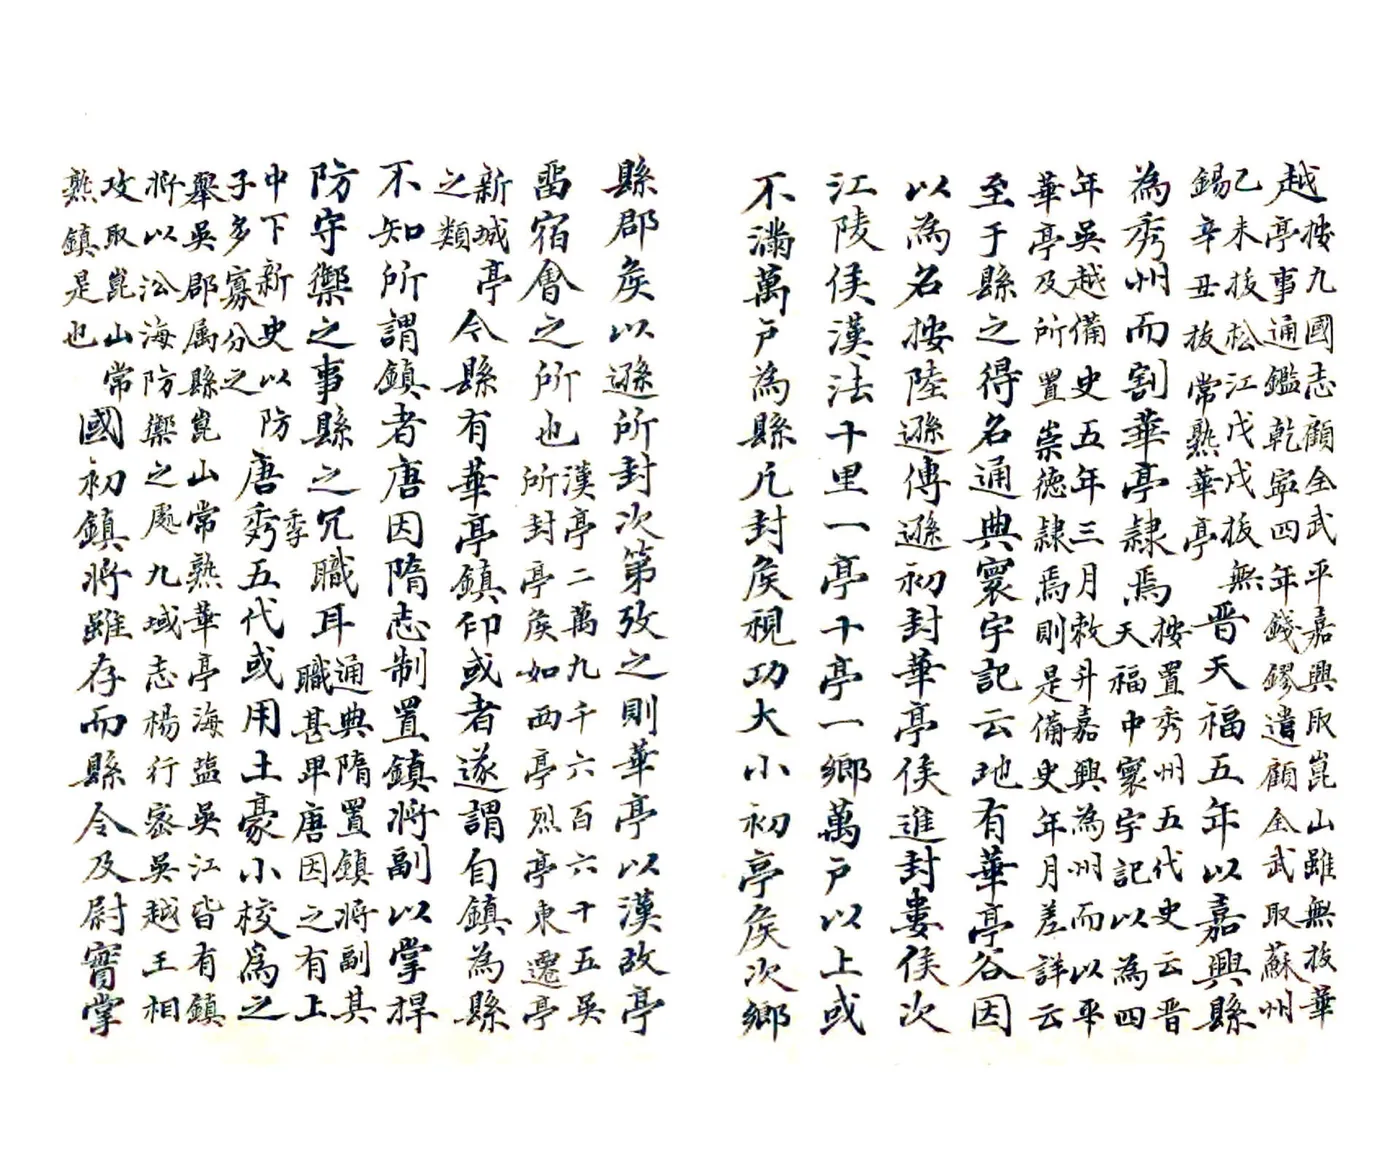 越
按九國志顧全武平嘉興取崑山雖無拔華
亭事通鑑乾寧四年錢鏐遣顧全武取蘇州
乙未拔松江戊戌拔無
錫辛丑拔常熟華亭
晋天福五年以嘉興縣
為秀州而割華亭隸焉
按置秀州五代史云晋
天福中寰宇記以為四
年吳越備史五年三月敕升嘉興為州而以平
華亭及所置崇德隸焉則是備史年月差詳云
至于縣之得名通典寰宇記云地有華亭谷因
以為名按陸遜傳遜初封華亭侯進封婁侯次
江陵侯漢法十里一亭十亭一鄉萬戶以上或
不滿萬戶為縣凡封侯視功大小初亭侯次鄉
縣郡侯以遜所封次第攷之則華亭以漢故亭
畱宿會之所也
漢亭二萬九千六百六十五吳
所封亭侯如西亭烈亭東遷亭
新城
之類
亭今縣有華亭鎮印或者遂謂自鎮為縣
不知所謂鎮者唐因隋志制置鎮將副以掌捍
防守禦之事縣之冗職耳
通典隋置鎮將副其
職甚卑唐因之有上
中下新史以防
子多寡分之
唐秀季五代或用土豪小校為之
舉吳郡属縣崑山常熟華亭海盐吳江皆有鎮
將以㳂海防禦之處九域志楊行密吳越王相
攻取崑山常
熟鎮是也
國初鎮將雖存而縣令及尉實掌